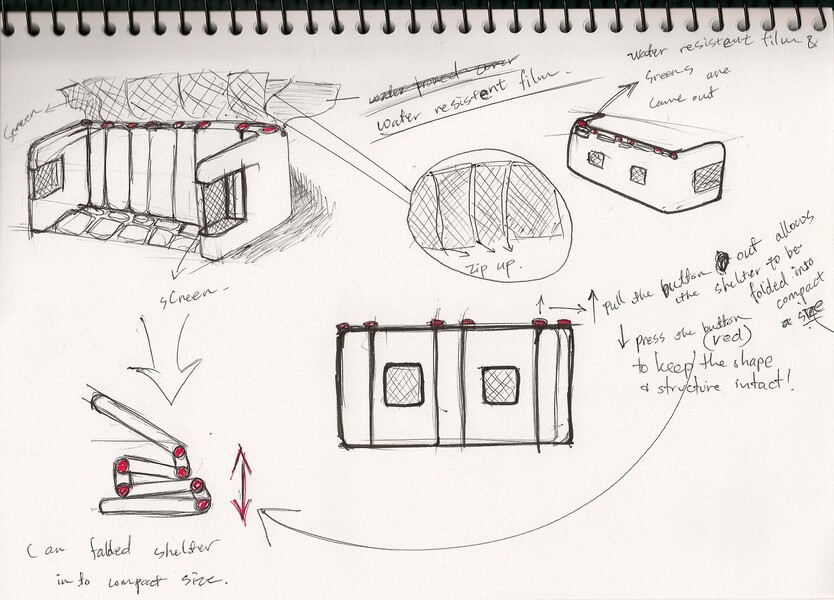 Screen
water proved cover
water resistent film.
water resistent film &
Sreens are
came out
Zip up.
screen.
Pull the button out allows
the shelter to be
folded into
compact
size
press the button
(red)
to keep the shape
& structure intact!
Can folded shelter
in to compact size.